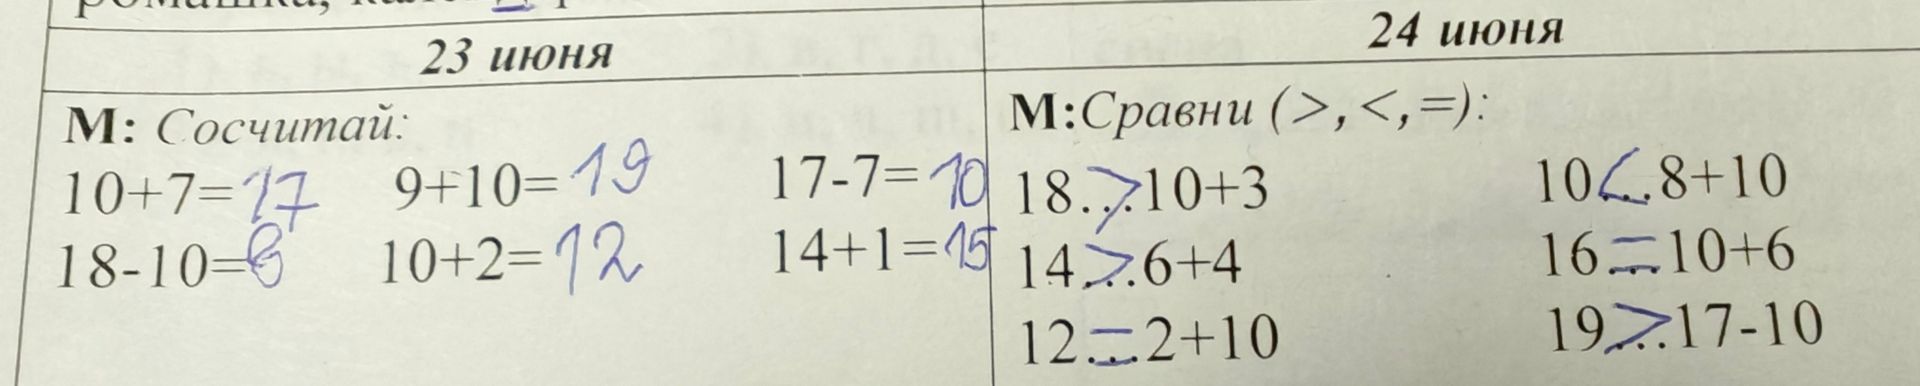 23 июня
М: Сосчитай:
10+7=17 9+10=19 17-7=10
18-10=8 10+2=12 14+1=15
24 июня
М:Сравни (>,<,=):
18.>.10+3 10<..8+10
14.>.6+4 16=10+6
12.=.2+10 19.>.17-10